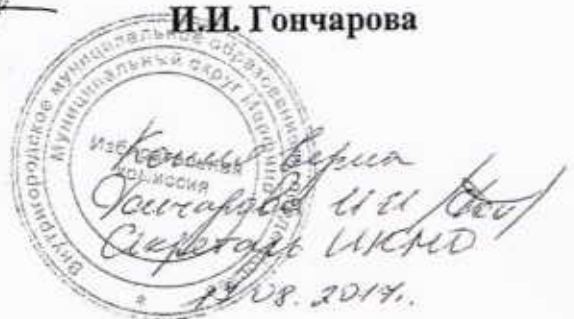 И.И. Гончарова
Внутригородское муниципальное образование
Муниципальный округ
Избирательная
комиссия
Копия верна
Гончарова И И
Секретарь ИКМО
08.2014.